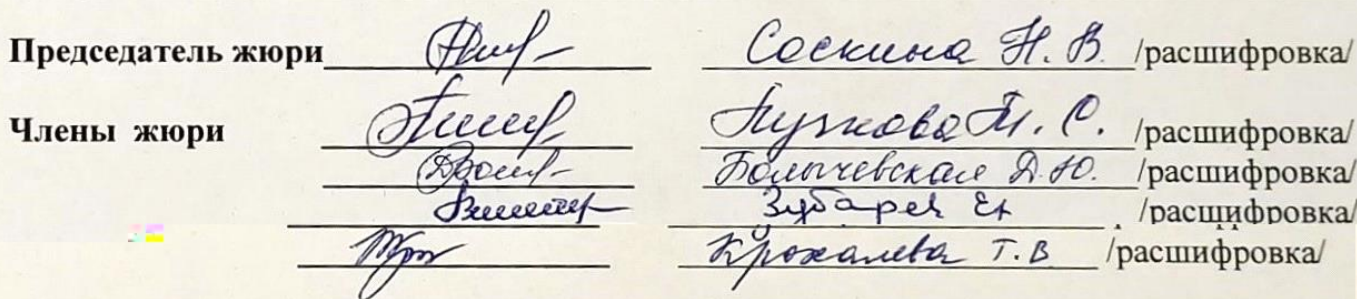 Председатель жюри Соскина Н. В. /расшифровка/
Члены жюри Пузкова Т. С. /расшифровка/
Болычевская Д. Ю. /расшифровка/
Зубарев Ек /расшифровка/
Крохалева Т. В /расшифровка/